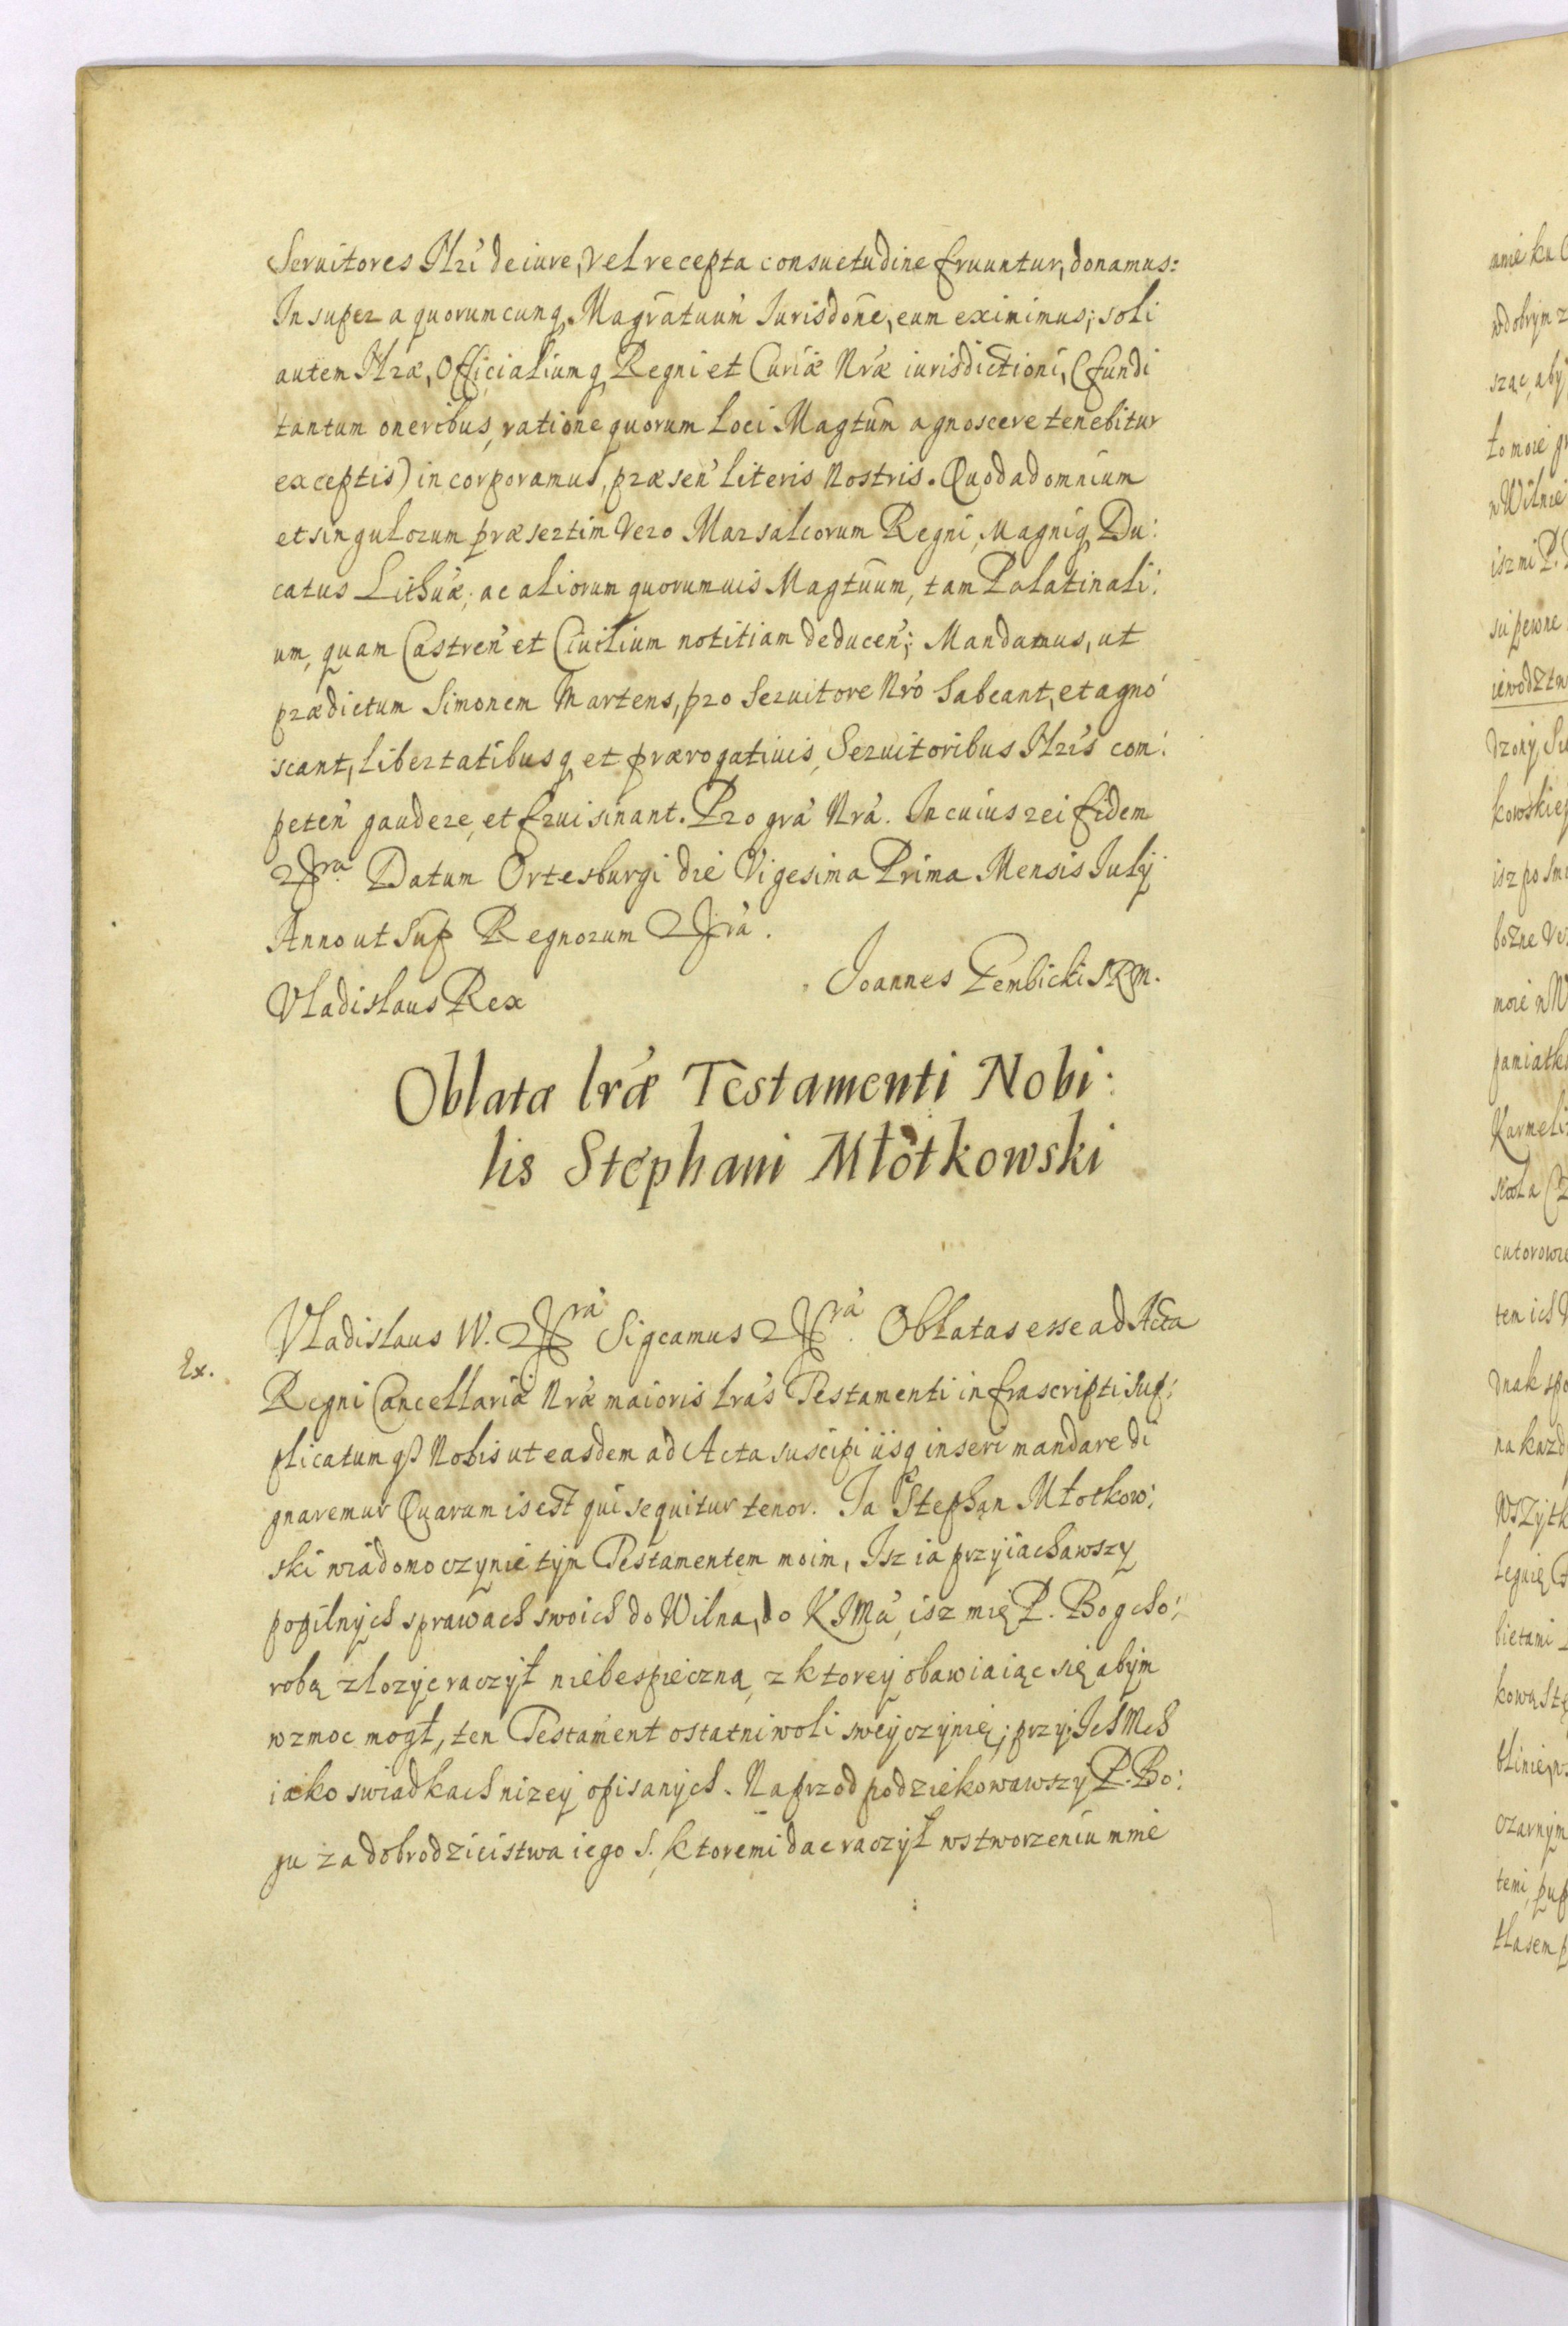 Seruitores Nri de iure, vel recepta consuetudine fruuntur, donamus:
Insuper a quorumcunq Magratuum Jurisdone, eum eximimus; soli
autem Nræ, Officialiumq Regni et Curiæ Nræ iurisdictioni, (fundi
tantum oneribus, ratione quorum Loci Magtum agnoscere tenebitur
exceptis) incorporamus, præsen' literis Nostris. Quod ad omnium
et singulorum præsertim vero Marsalcorum Regni, Magniq Du:
catus Lithuæ, ac aliorum quorumuis Magtuum, tam Palatinali:
um, quam Castren' et Ciuilium notitiam deducen'; Mandamus, ut
prædictum Simonem Martens, pro Seruitore Nro habeant, et agno
scant, libertatibusq et prærogatiuis, Seruitoribus Nris com:
peten' gaudere, et frui sinant. Pro gra' Nra'. In cuius rei fidem
Datum Ortesburgi die Vigesima Prima Mensis July
Anno ut Sup Regnorum
Vladislaus Rex
Joannes Gembicki SRM.
Oblatæ lræ Testamenti Nobi:
lis Stephani Młotkowski
Ex.
Vladislaus IV. Sigcamus Oblatas esse ad Acta
Regni Cancellariæ Nræ maioris lras Testamenti infrascripti Sup:
plicatumq Nobis ut easdem ad Acta suscipi iisq inseri mandare di
gnaremur Quarum is est qui sequitur tenor. Ja Stephan Młotkow:
ski wiadomo czynie tym Testamentem moim, Isz ia przyiachawszy
po pilnych sprawach swoich do Wilna, do KJMci, isz mię P. Bog cho:
robą zlozyc raczył niebespieczną, z ktorey obawiaiąc się abym
wzmoc mogł, ten Testament ostatni woli swey czynię; przy Ich Mch
iako swiadkach nizey opisanych. Naprzod podziekowawszy P. Bo:
gu za dobrodzieistwa iego S. ktoremi dac raczył w stworzeniu mnie